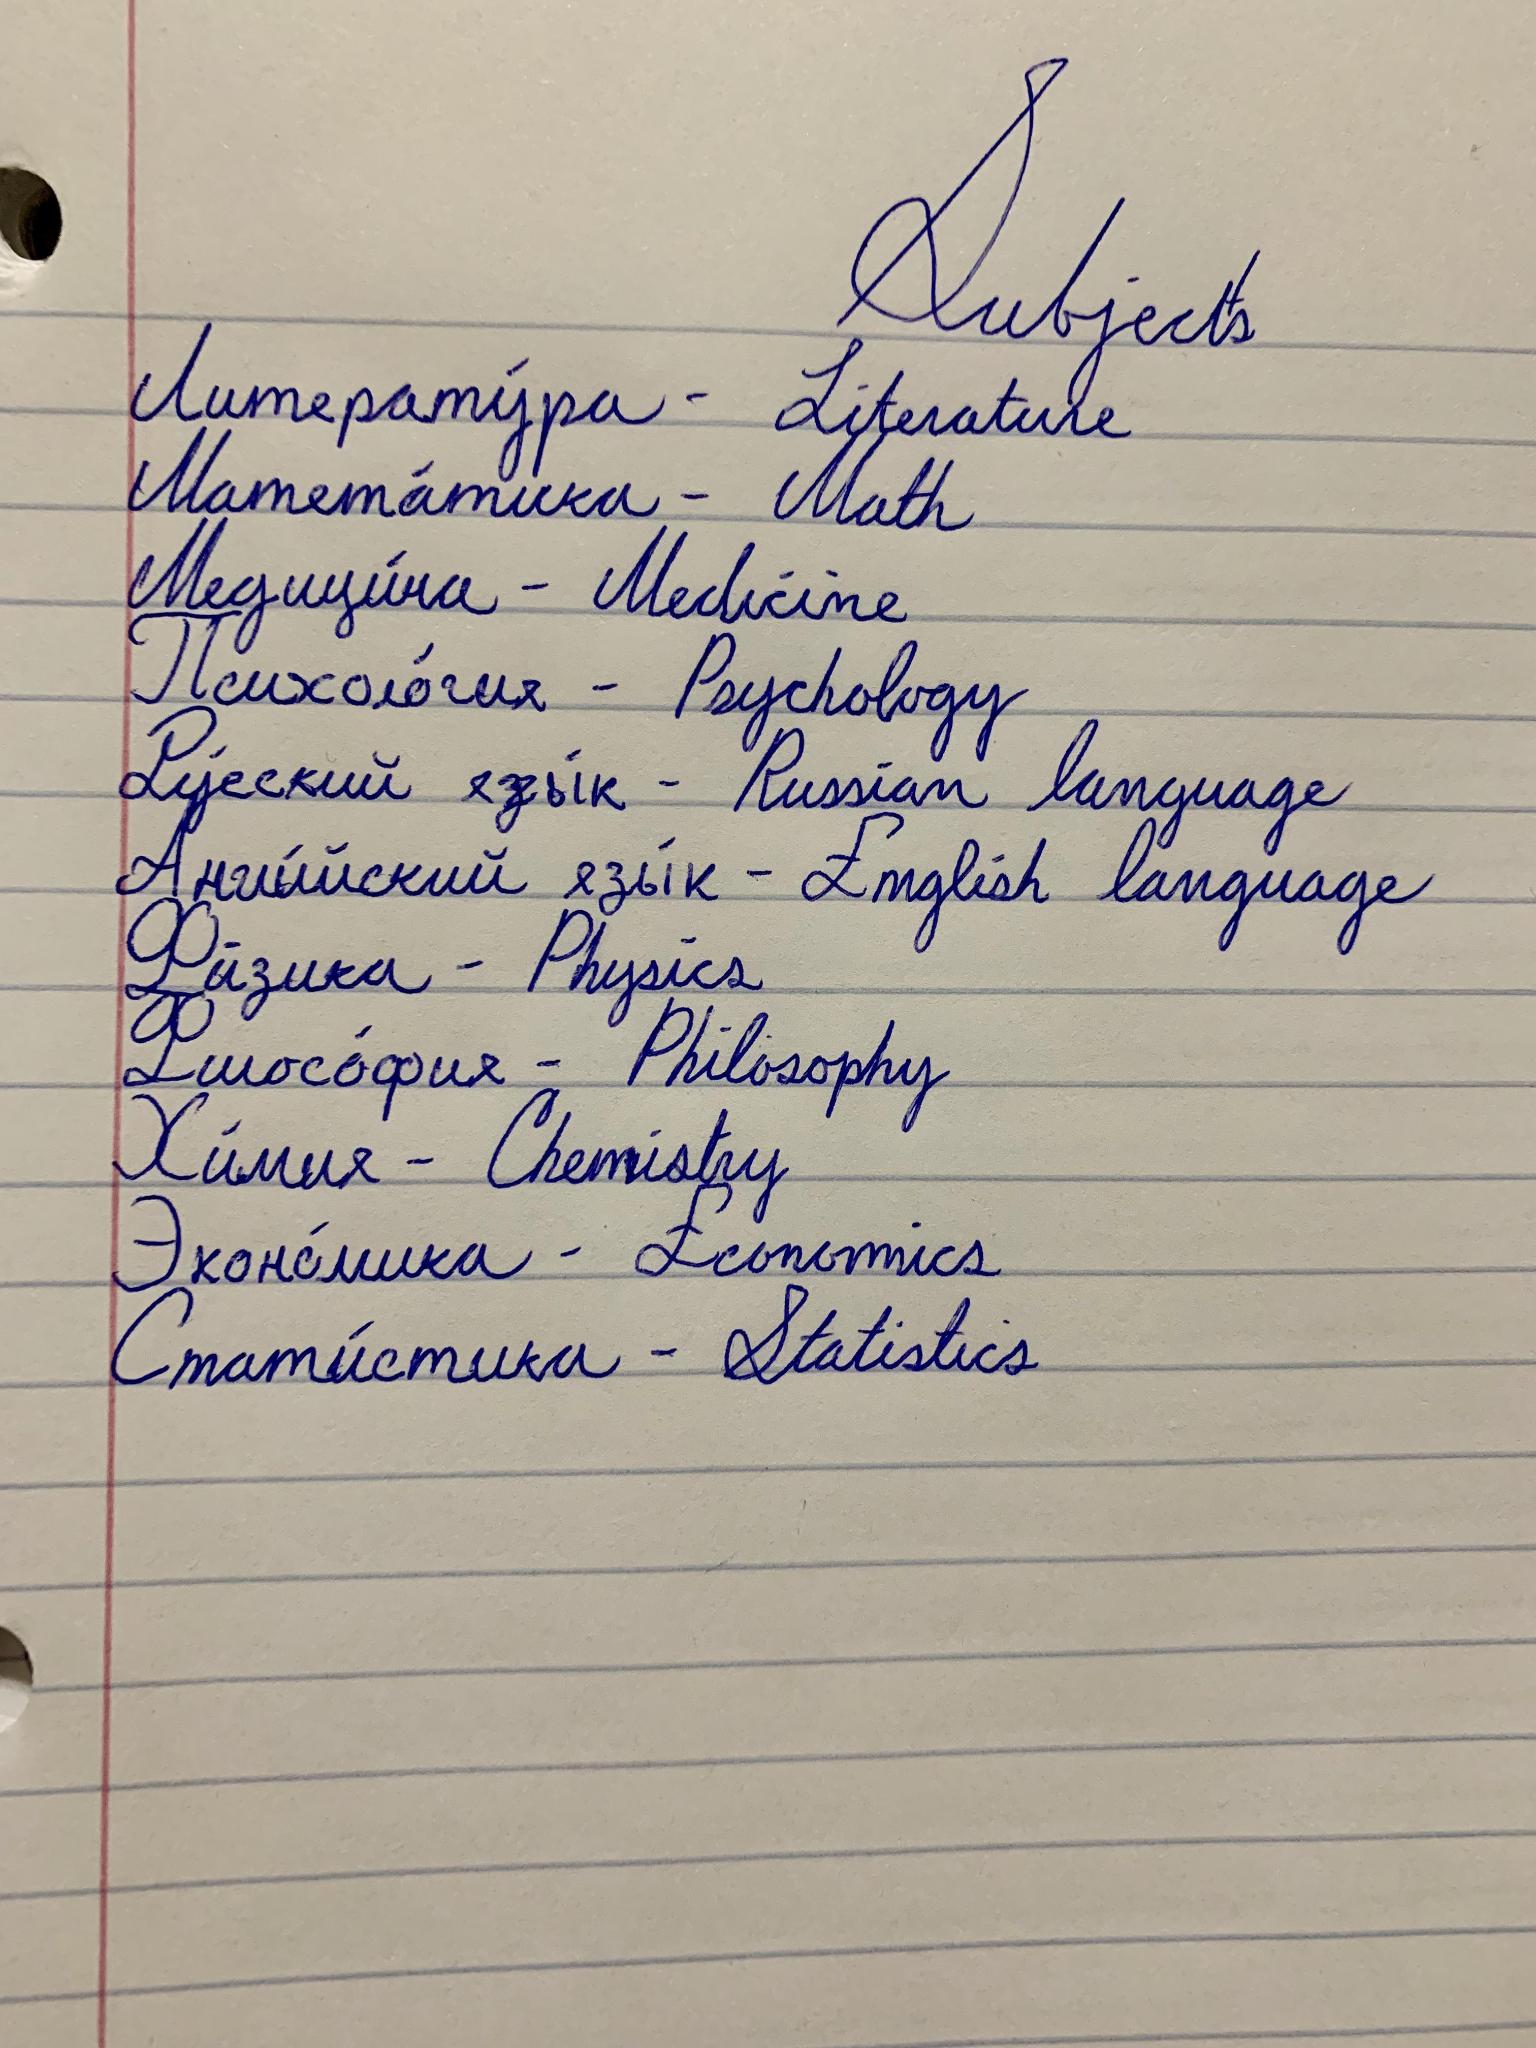 Subjects
Литерату́ра - Literature
Матема́тика - Math
Медици́на - Medicine
Психоло́гия - Psychology
Ру́сский язы́к - Russian language
Англи́йский язы́к - English language
Фи́зика - Physics
Филосо́фия - Philosophy
Хи́мия - Chemistry
Эконо́мика - Economics
Стати́стика - Statistics